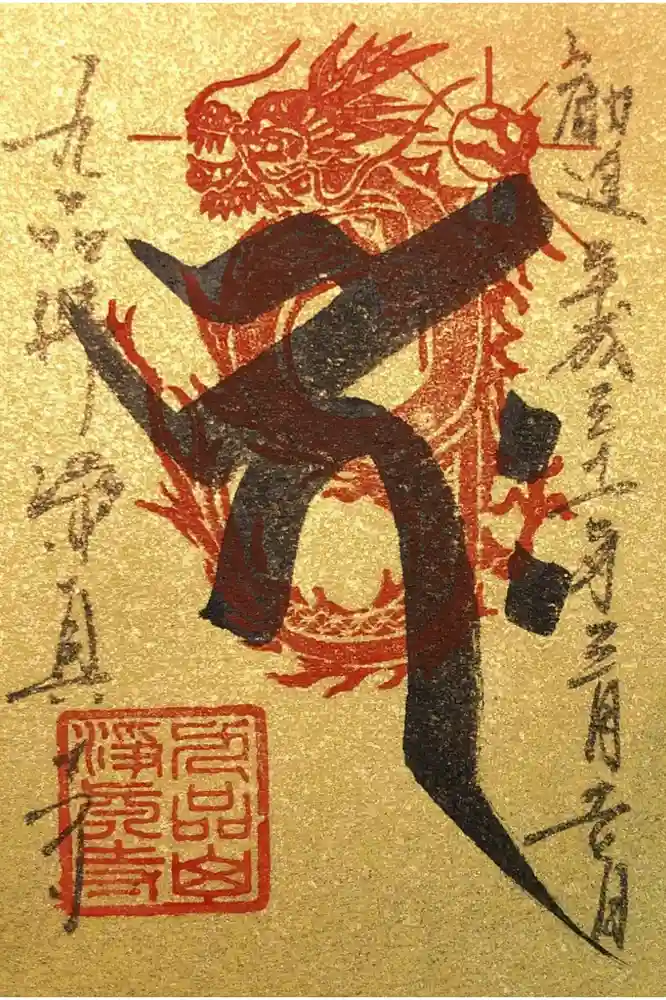 平成三十一年三月吉日
𑖮𑖿𑖨𑖱𑖾
九品佛浄真寺
九品山
浄真寺